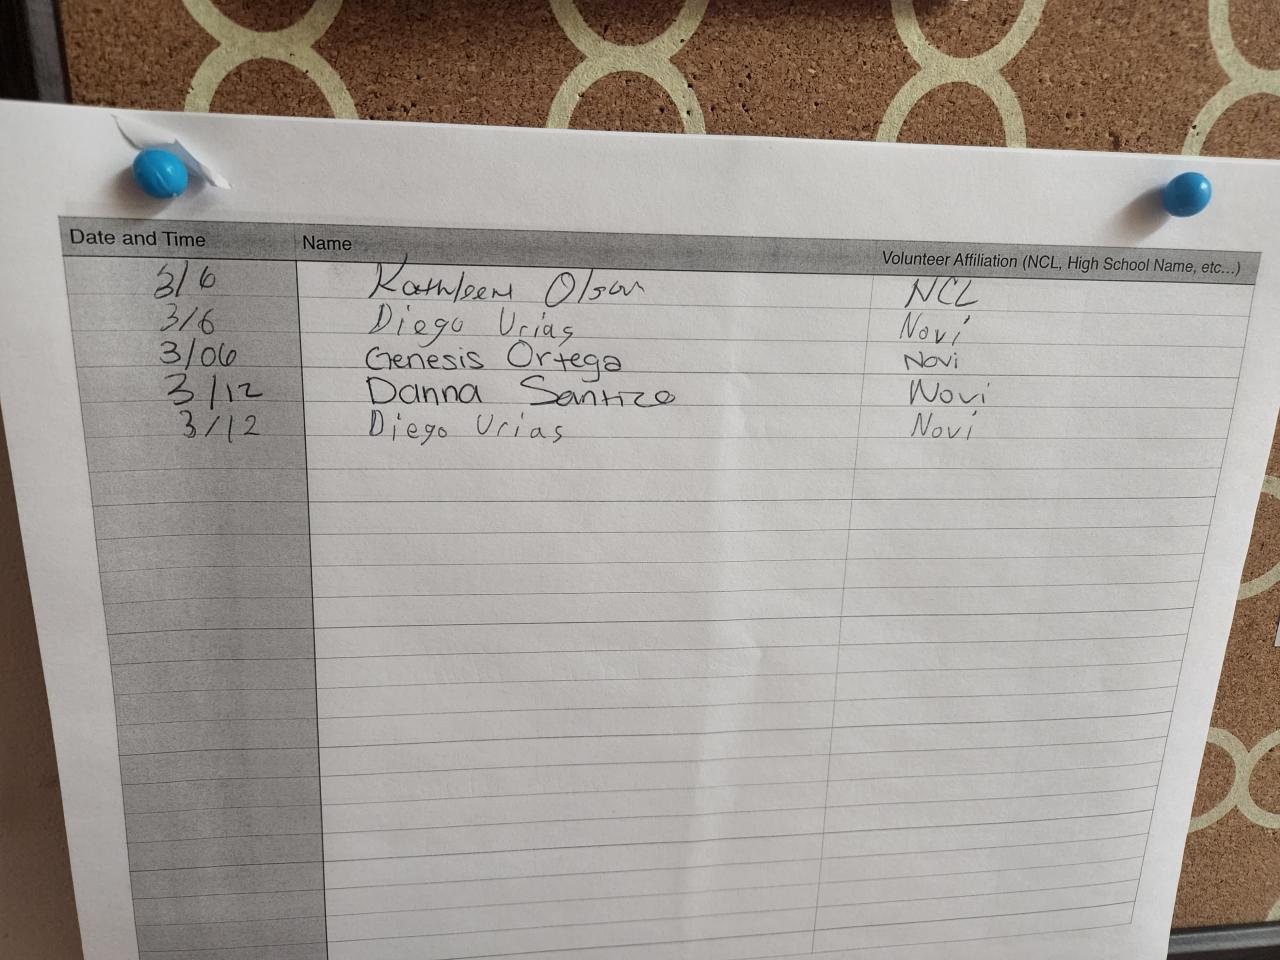 Date and Time Name Volunteer Affiliation (NCL, High School Name, etc...)
3/6 Kathleen Olson NCL
3/6 Diego Urias Novi
3/06 Genesis Ortega Novi
3/12 Danna Santizo Novi
3/12 Diego Urias Novi